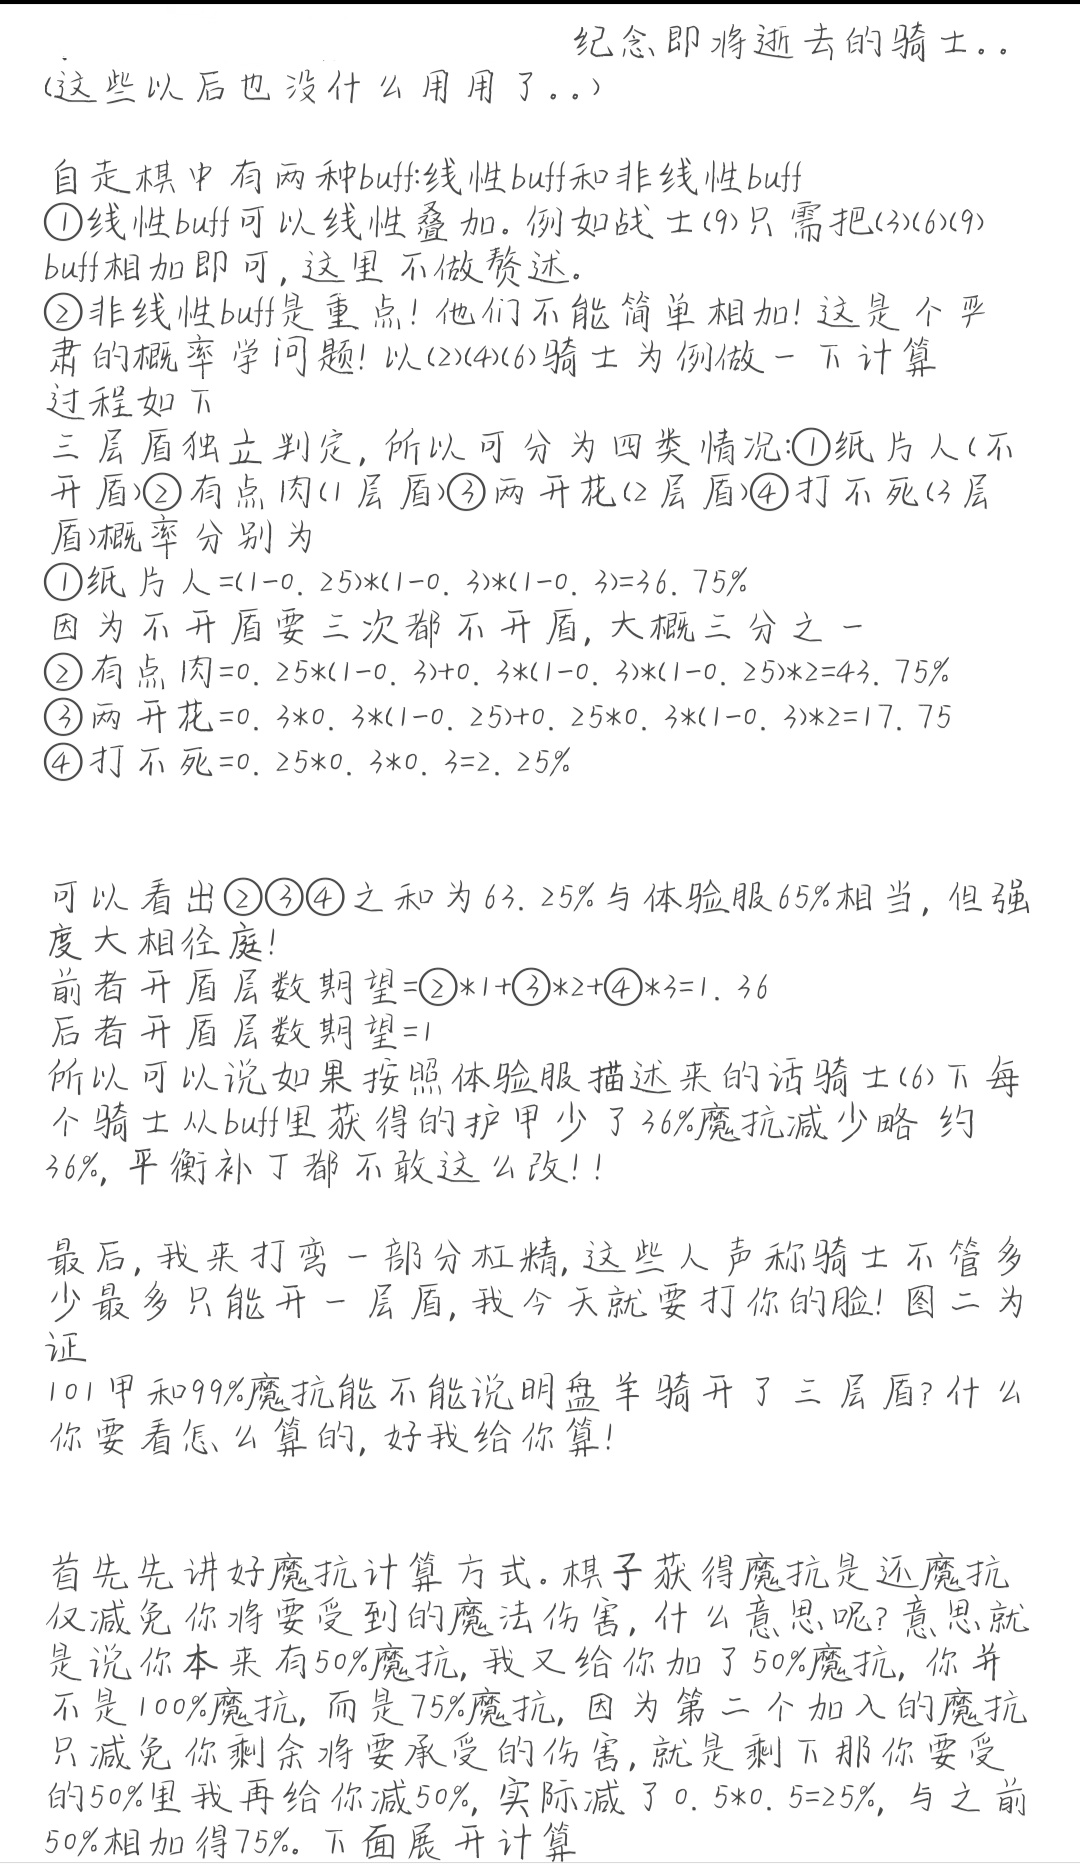 纪念即将逝去的骑士..
(这些以后也没什么用用了..)
自走棋中有两种buff:线性buff和非线性buff
①线性buff可以线性叠加.例如战士(9)只需把(3)(6)(9)
buff相加即可,这里不做赘述。
②非线性buff是重点!他们不能简单相加!这是个严
肃的概率学问题!以(2)(4)(6)骑士为例做一下计算
过程如下
三层盾独立判定,所以可分为四类情况:①纸片人(不
开盾)②有点肉(1层盾)③两开花(2层盾)④打不死(3层
盾)概率分别为
①纸片人=(1-0.25)*(1-0.3)*(1-0.3)=36.75%
因为不开盾要三次都不开盾,大概三分之一
②有点肉=0.25*(1-0.3)+0.3*(1-0.3)*(1-0.25)*2=43.75%
③两开花=0.3*0.3*(1-0.25)+0.25*0.3*(1-0.3)*2=17.75
④打不死=0.25*0.3*0.3=2.25%
可以看出②③④之和为63.25%与体验服65%相当,但强
度大相径庭!
前者开盾层数期望=②*1+③*2+④*3=1.36
后者开盾层数期望=1
所以可以说如果按照体验服描述来的话骑士(6)下每
个骑士从buff里获得的护甲少了36%魔抗减少略约
36%,平衡补丁都不敢这么改!!
最后,我来打弯一部分杠精,这些人声称骑士不管多
少最多只能开一层盾,我今天就要打你的脸!图二为
证
101甲和99%魔抗能不能说明盘羊骑开了三层盾?什么
你要看怎么算的,好我给你算!
首先先讲好魔抗计算方式.棋子获得魔抗是还魔抗
仅减免你将要受到的魔法伤害,什么意思呢?意思就
是说你本来有50%魔抗,我又给你加了50%魔抗,你并
不是100%魔抗,而是75%魔抗,因为第二个加入的魔抗
只减免你剩余将要承受的伤害,就是剩下那你要受
的50%里我再给你减50%,实际减了0.5*0.5=25%,与之前
50%相加得75%。下面展开计算